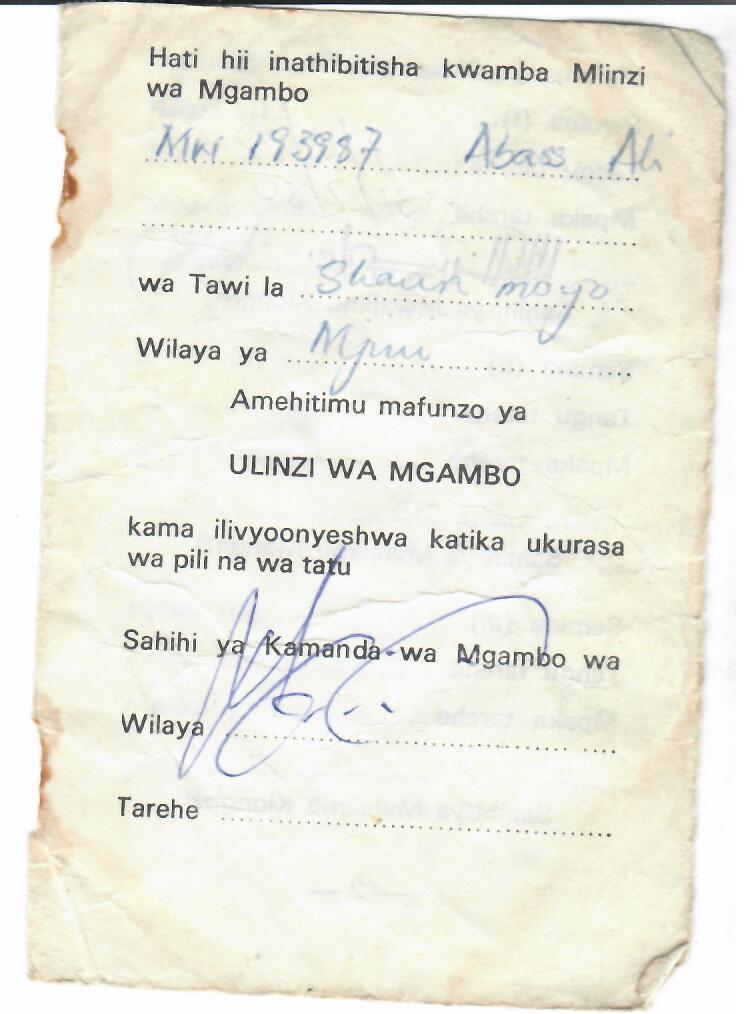 Hati hii inathibitisha kwamba Mlinzi
wa Mgambo
193987 Abass Ali
wa Tawi la Shauri moyo
Wilaya ya Mjini
Amehitimu mafunzo ya
ULINZI WA MGAMBO
kama ilivyoonyeshwa katika ukurasa
wa pili na wa tatu
Sahihi ya Kamanda wa Mgambo wa
Wilaya
Tarehe